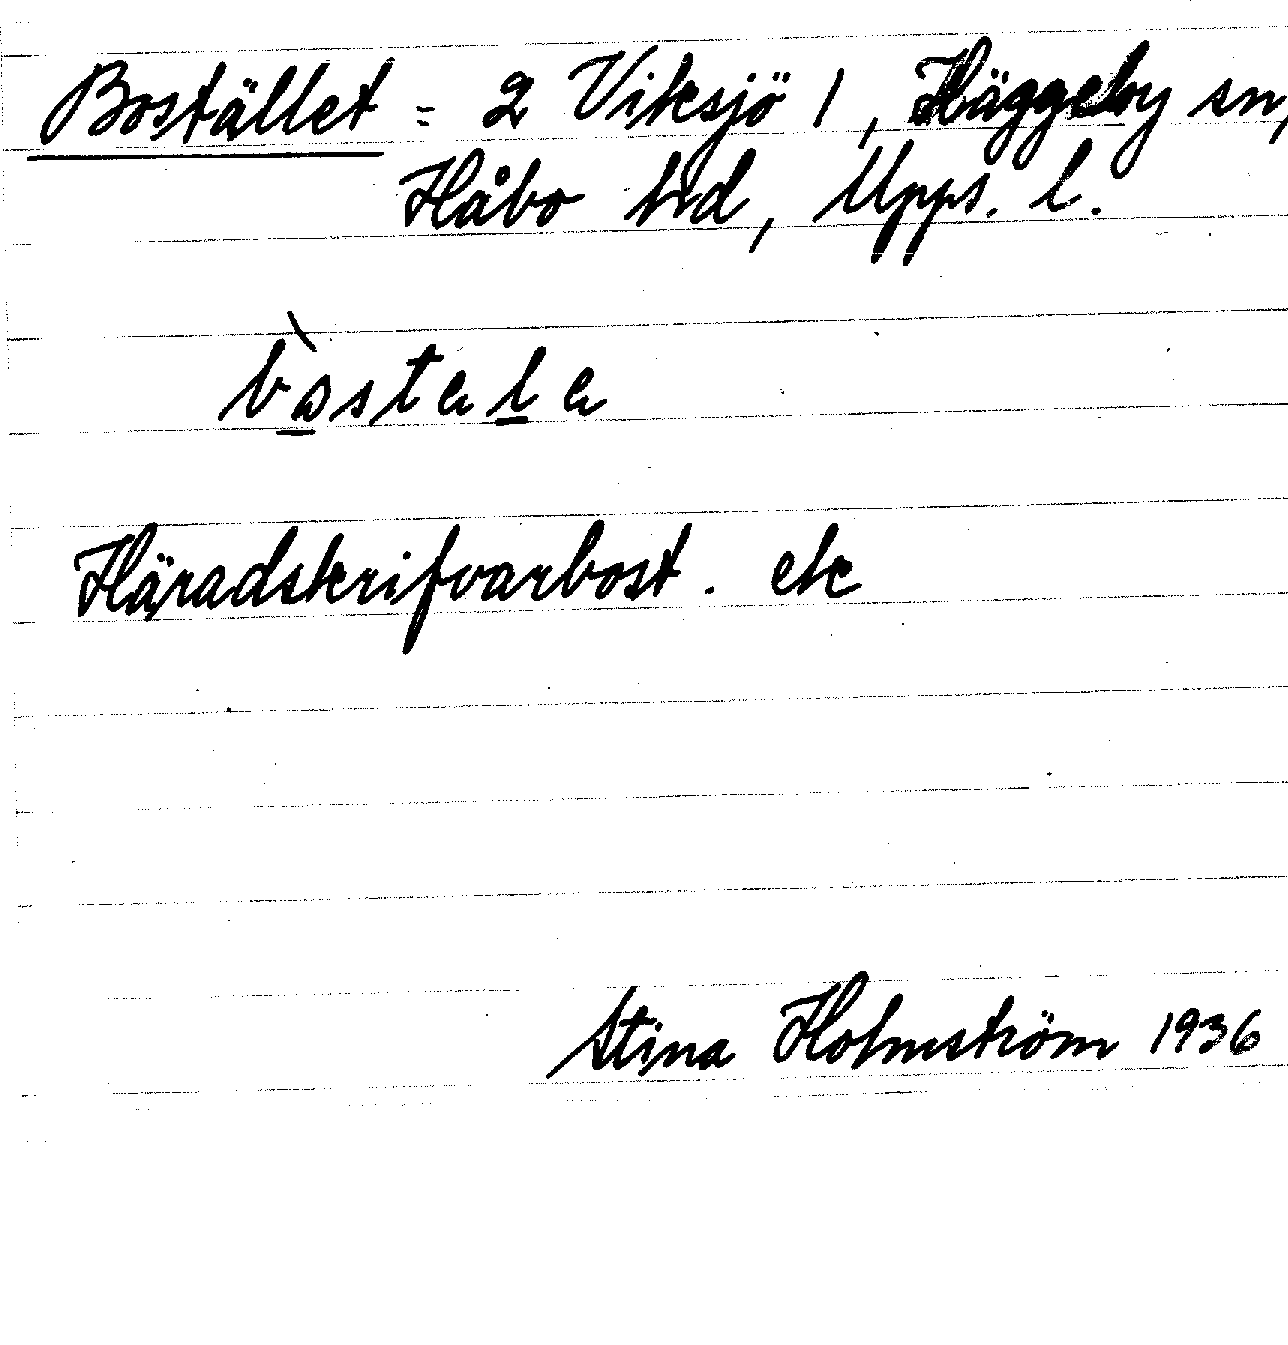 Bostället = 2 Viksjö 1, Häggeby sn,
Håbo hd, Upps. l.
bòstala
Häradskrifvarbost. ek
Stina Holmström 1936